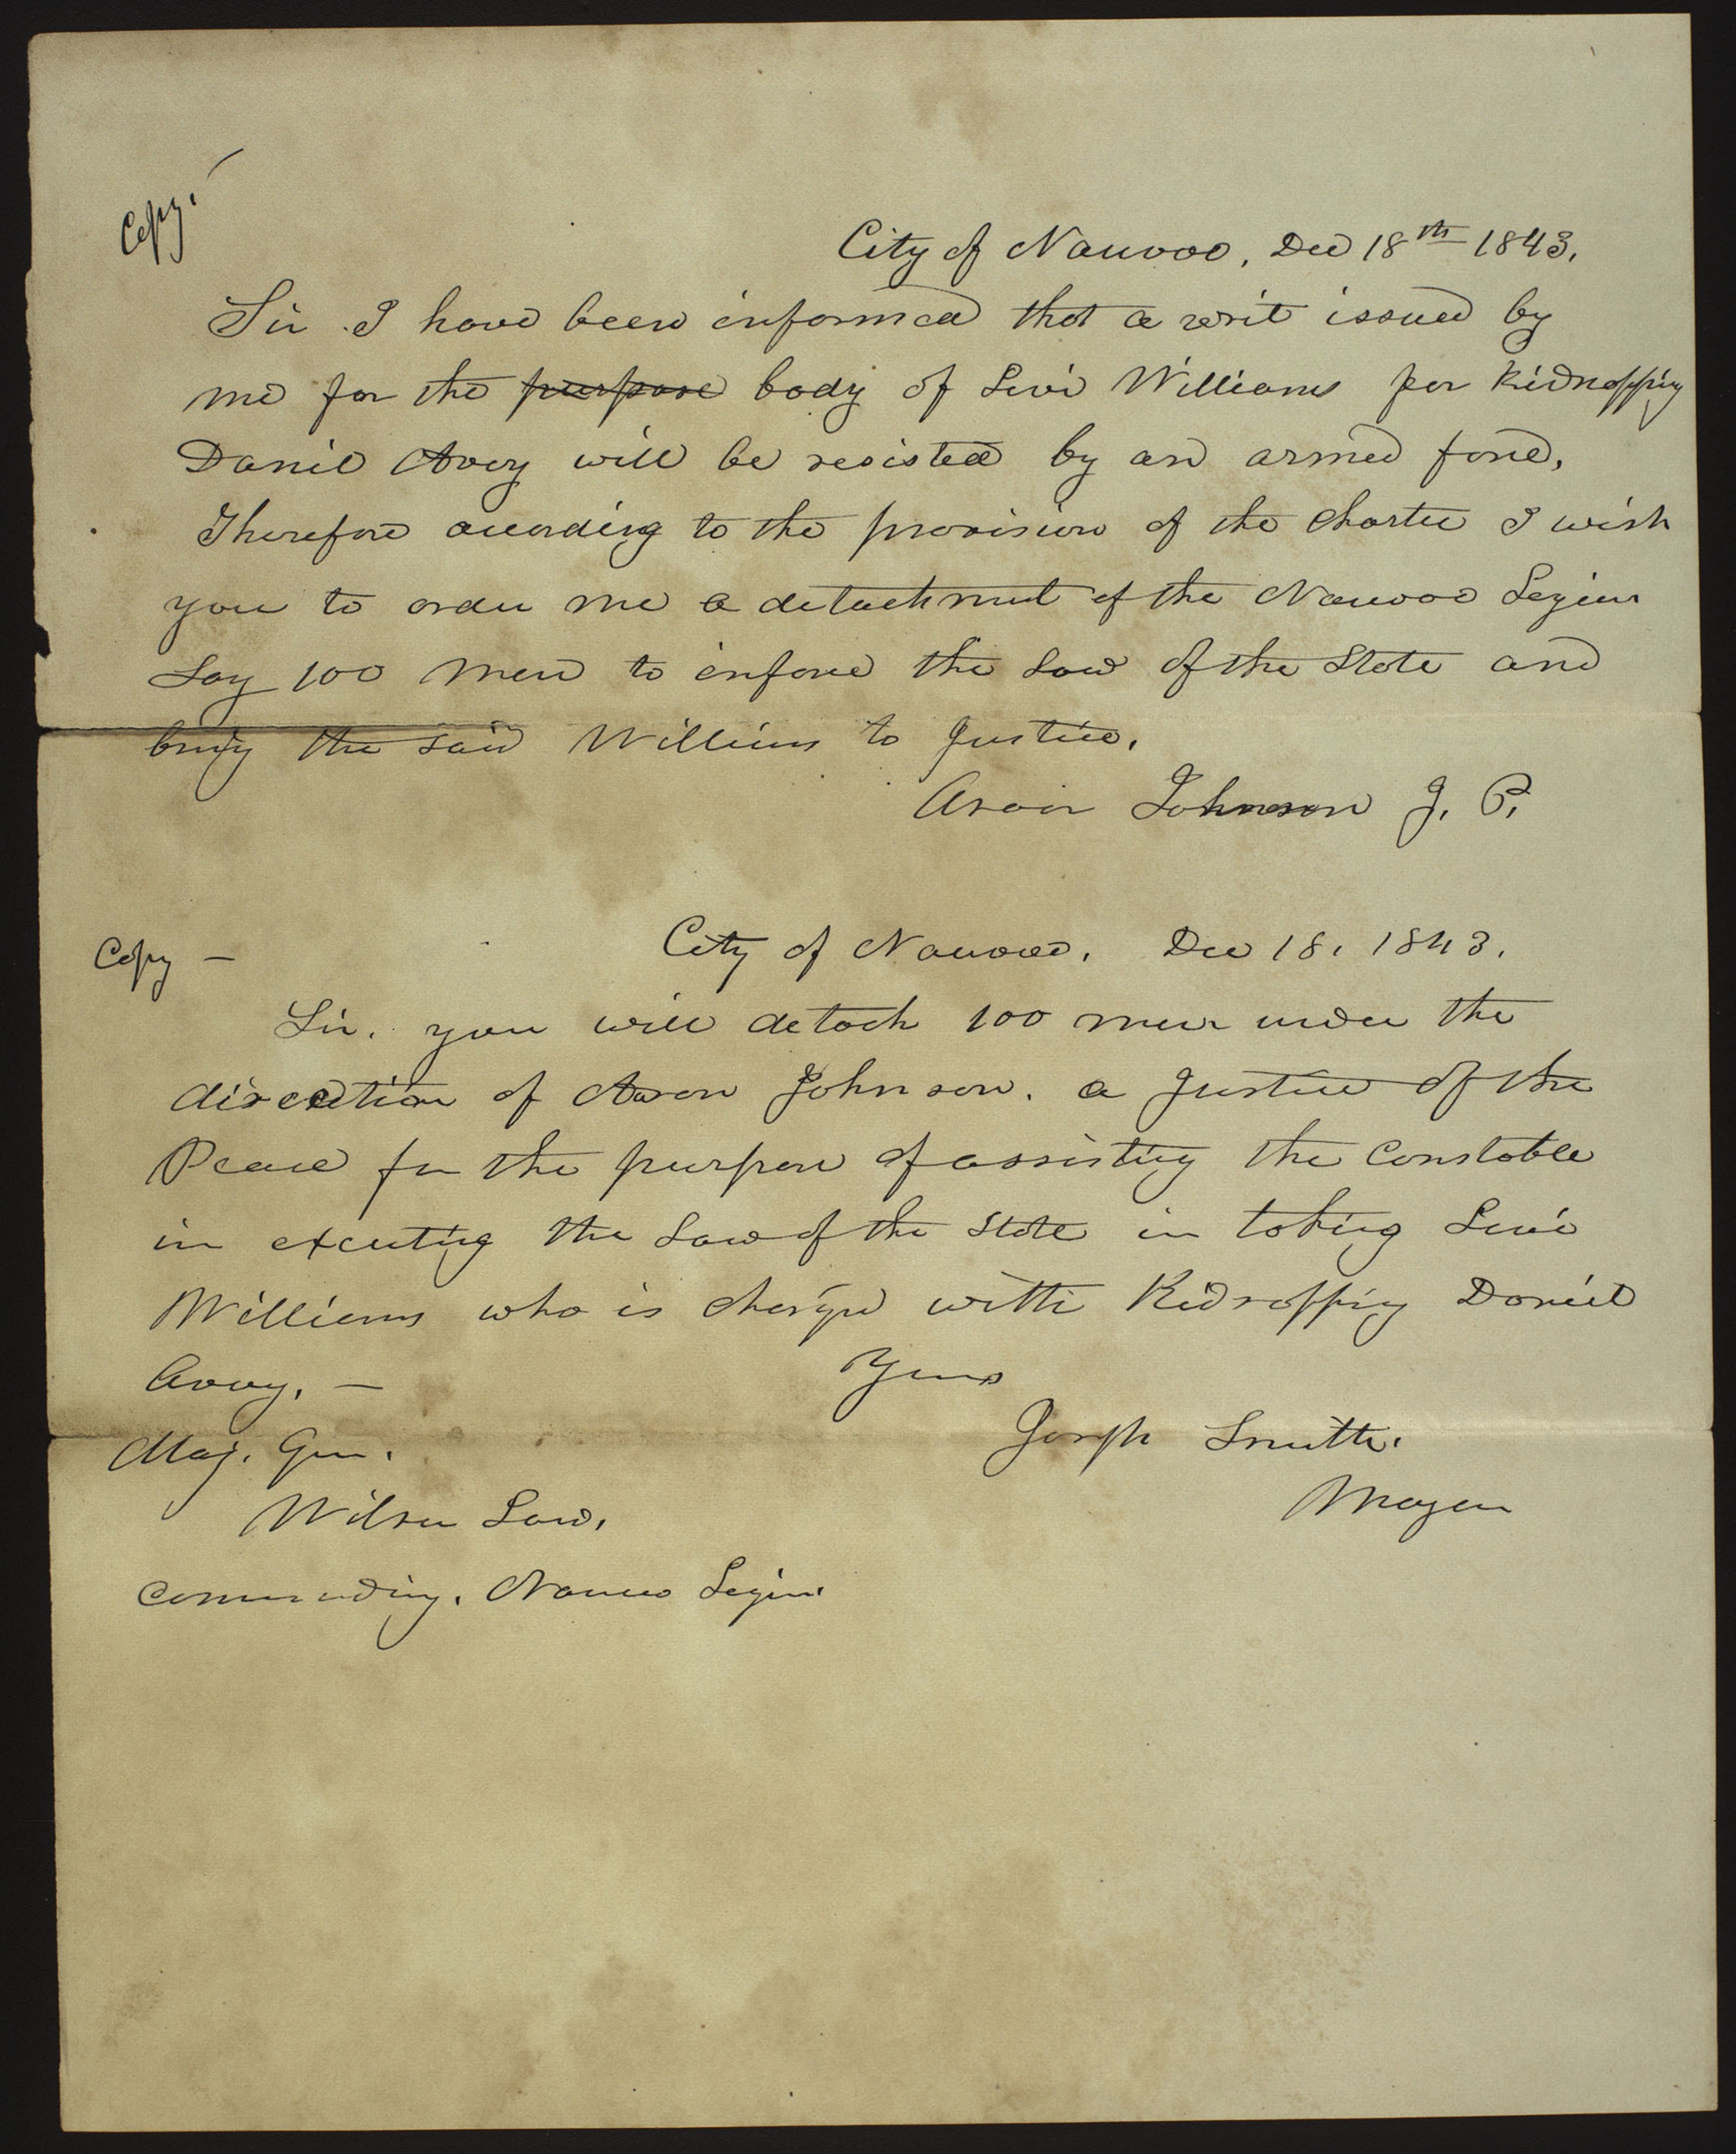 Copy.
City of Nauvoo, Dec 18th 1843.
Sir. I have been informed that a writ issued by
me for the purpose body of Levi Williams for Kidnapping
Daniel Avery will be resisted by an armed force,
Therefore according to the provision of the Charter I wish
you to order me a detachment of the Nauvoo Legion
Say 100 men to enforce the Law of the State and
bring the said Williams to Justice.
Aaron Johnson J. P.
Copy —
City of Nauvoo. Dec 18. 1843.
Sir. you will detach 100 men under the
direction of Aaron Johnson. a Justice of the
Peace for the purpose of assisting the Constable
in executing the Law of the State in taking Levi
Williams who is charged with Kidnapping Daniel
Avery. —
Yours
Joseph Smith.
Mayor
Maj. Gen.
Wilson Law.
Commanding. Nauvoo Legion.